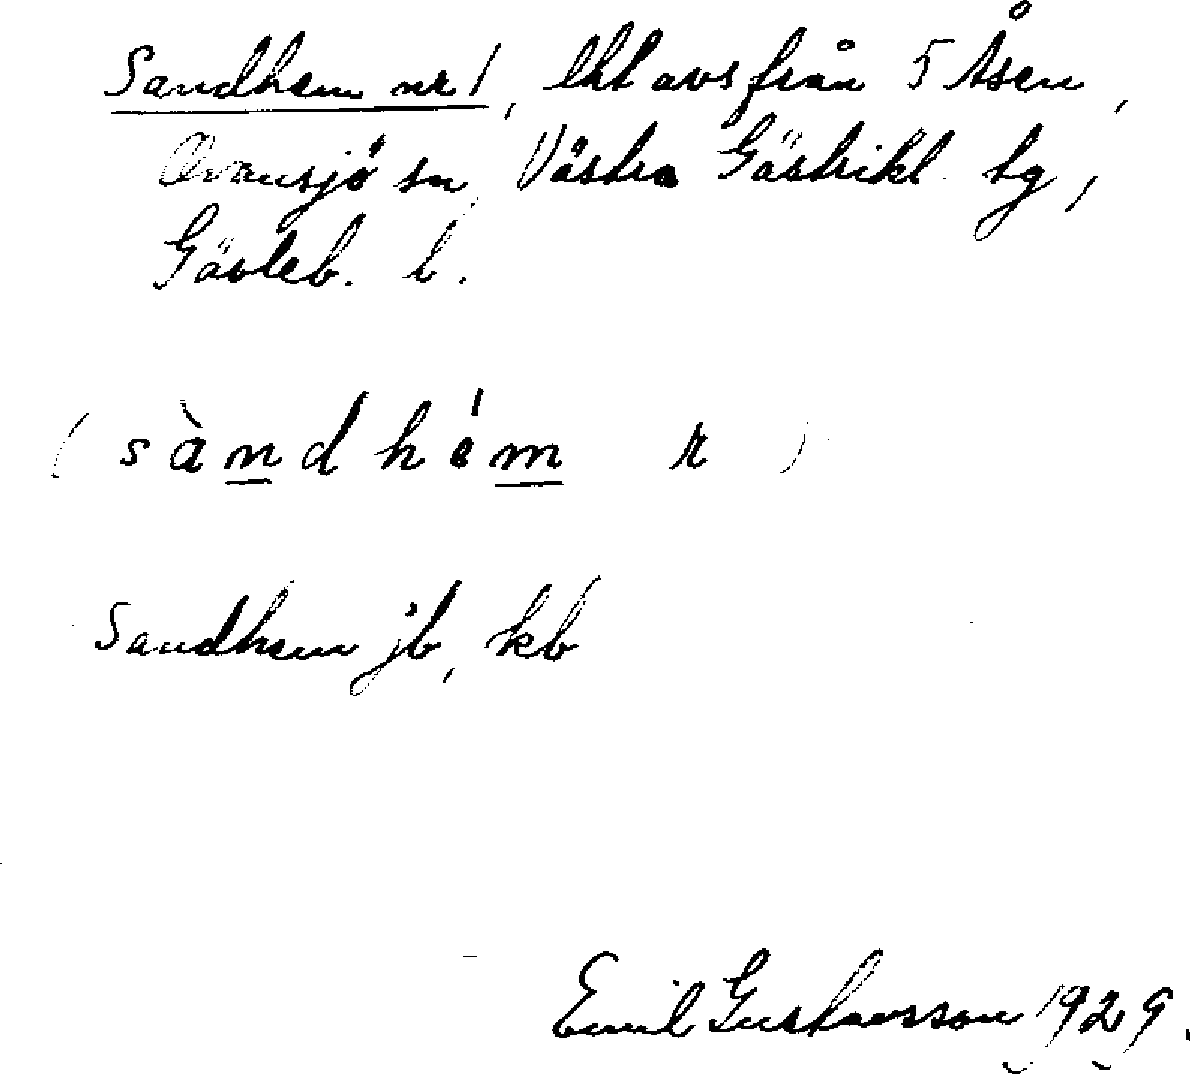 Sandhem nr 1, lht avs från 5 Åsen,
Ovansjö sn, Västra Gästrikl. tg,
Gävleb. l.
(sàndhém r)
Sandhem jb, kb
Emil Gustavsson 1929.